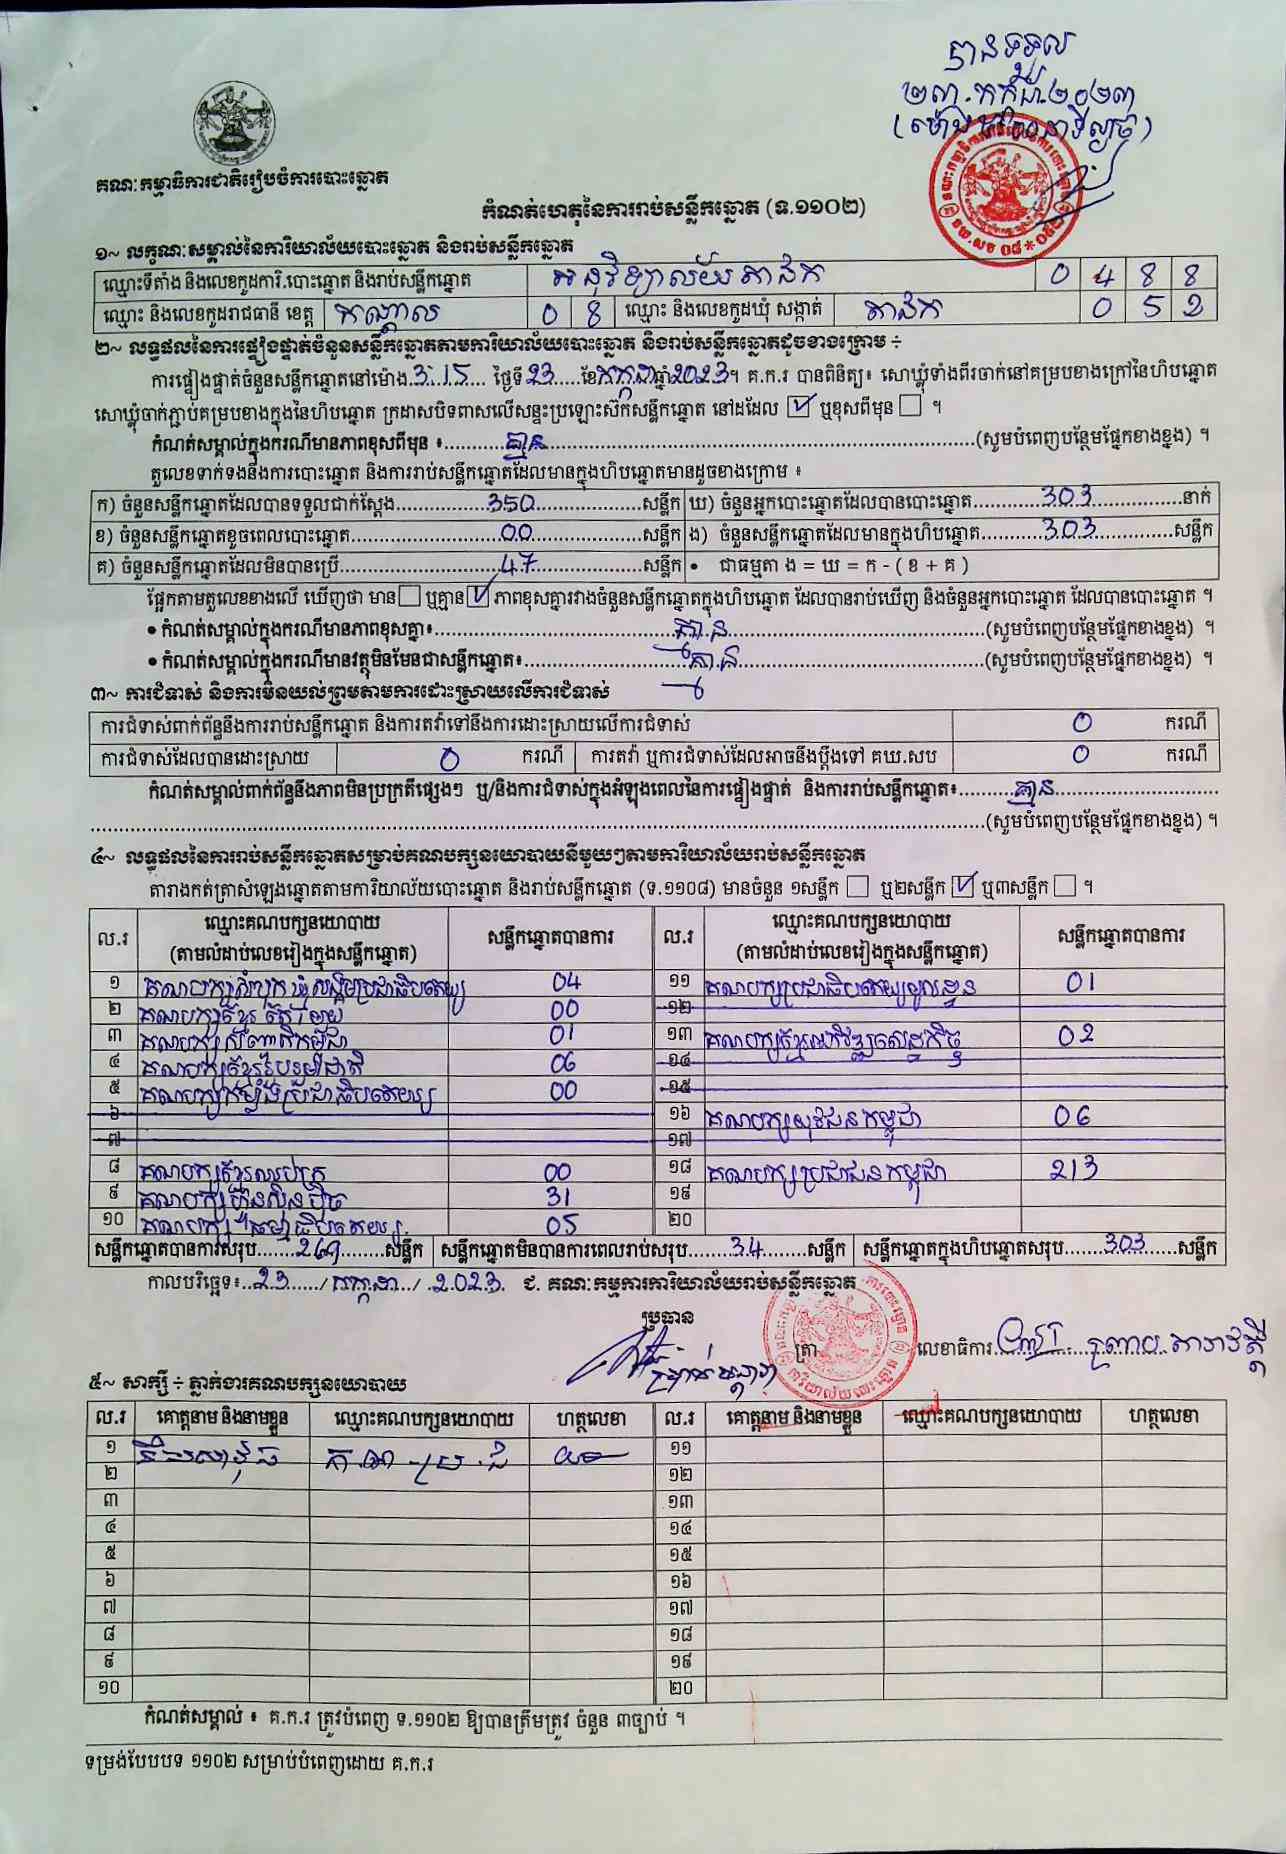 បានទទួល
២៣.កក្កដា.២០២៣
គណៈកម្មាធិការជាតិរៀបចំការបោះឆ្នោត
កំណត់ហេតុនៃការរាប់សន្លឹកឆ្នោត (ទ.១១០២)
១~ លក្ខណៈសម្គាល់នៃការិយាល័យបោះឆ្នោត និងរាប់សន្លឹកឆ្នោត
ឈ្មោះទីតាំង និងលេខកូដការិ.បោះឆ្នោត និងរាប់សន្លឹកឆ្នោត អនុវិទ្យាល័យ តាឯក 0 4 8 8
ឈ្មោះ និងលេខកូដរាជធានី ខេត្ត កណ្តាល 0 8 ឈ្មោះ និងលេខកូដឃុំ សង្កាត់ តាឯក 0 5 2
២~ លទ្ធផលនៃការផ្ទៀងផ្ទាត់ចំនួនសន្លឹកឆ្នោតតាមការិយាល័យបោះឆ្នោត និងរាប់សន្លឹកឆ្នោតដូចខាងក្រោម ÷
ការផ្ទៀងផ្ទាត់ចំនួនសន្លឹកឆ្នោតនៅម៉ោង.3:15... ថ្ងៃទី23.....ខែកក្កដាឆ្នាំ2023។ គ.ក.រ បានពិនិត្យ៖ សោឃ្លុំទាំងពីរចាក់នៅគម្របខាងក្រៅនៃហិបឆ្នោត
សោឃ្លុំចាក់ភ្ជាប់គម្របខាងក្នុងនៃហិបឆ្នោត ក្រដាសបិទពាសលើសន្ទះប្រឡោះស៊កសន្លឹកឆ្នោត នៅដដែល ☑ ឬខុសពីមុន ☐ ។
កំណត់សម្គាល់ក្នុងករណីមានភាពខុសពីមុន ៖..........គ្មាន..........(សូមបំពេញបន្ថែមផ្នែកខាងខ្នង) ។
តួលេខទាក់ទងនឹងការបោះឆ្នោត និងការរាប់សន្លឹកឆ្នោតដែលមានក្នុងហិបឆ្នោតមានដូចខាងក្រោម ៖
ក) ចំនួនសន្លឹកឆ្នោតដែលបានទទួលជាក់ស្តែង..........350..........សន្លឹក ឃ) ចំនួនអ្នកបោះឆ្នោតដែលបានបោះឆ្នោត..........303..........នាក់
ខ) ចំនួនសន្លឹកឆ្នោតខូចពេលបោះឆ្នោត..........00..........សន្លឹក ង) ចំនួនសន្លឹកឆ្នោតដែលមានក្នុងហិបឆ្នោត..........303..........សន្លឹក
គ) ចំនួនសន្លឹកឆ្នោតដែលមិនបានប្រើ..........47..........សន្លឹក • ជាធម្មតា ង = ឃ = ក - ( ខ + គ )
ផ្អែកតាមតួលេខខាងលើ ឃើញថា មាន☐ ឬគ្មាន☑ ភាពខុសគ្នារវាងចំនួនសន្លឹកឆ្នោតក្នុងហិបឆ្នោត ដែលបានរាប់ឃើញ និងចំនួនអ្នកបោះឆ្នោត ដែលបានបោះឆ្នោត ។
• កំណត់សម្គាល់ក្នុងករណីមានភាពខុសគ្នា៖..........គ្មាន..........(សូមបំពេញបន្ថែមផ្នែកខាងខ្នង) ។
• កំណត់សម្គាល់ក្នុងករណីមានវត្ថុមិនមែនជាសន្លឹកឆ្នោត៖..........គ្មាន..........(សូមបំពេញបន្ថែមផ្នែកខាងខ្នង) ។
៣~ ការជំទាស់ និងការមិនយល់ព្រមតាមការដោះស្រាយលើការជំទាស់
ការជំទាស់ពាក់ព័ន្ធនឹងការរាប់សន្លឹកឆ្នោត និងការតវ៉ាទៅនឹងការដោះស្រាយលើការជំទាស់ 0 ករណី
ការជំទាស់ដែលបានដោះស្រាយ 0 ករណី ការតវ៉ា ឬការជំទាស់ដែលអាចនឹងប្តឹងទៅ គឃ.សប 0 ករណី
កំណត់សម្គាល់ពាក់ព័ន្ធនឹងភាពមិនប្រក្រតីផ្សេងៗ ឬ/និងការជំទាស់ក្នុងអំឡុងពេលនៃការផ្ទៀងផ្ទាត់ និងការរាប់សន្លឹកឆ្នោត៖..........គ្មាន..........
..........(សូមបំពេញបន្ថែមផ្នែកខាងខ្នង) ។
៤~ លទ្ធផលនៃការរាប់សន្លឹកឆ្នោតសម្រាប់គណបក្សនយោបាយនីមួយៗតាមការិយាល័យរាប់សន្លឹកឆ្នោត
តារាងកត់ត្រាសំឡេងឆ្នោតតាមការិយាល័យបោះឆ្នោត និងរាប់សន្លឹកឆ្នោត (ទ.១១០៨) មានចំនួន ១សន្លឹក ☐ ឬ២សន្លឹក ☑ ឬ៣សន្លឹក ☐ ។
ល.រ ឈ្មោះគណបក្សនយោបាយ (តាមលំដាប់លេខរៀងក្នុងសន្លឹកឆ្នោត) សន្លឹកឆ្នោតបានការ ល.រ ឈ្មោះគណបក្សនយោបាយ (តាមលំដាប់លេខរៀងក្នុងសន្លឹកឆ្នោត) សន្លឹកឆ្នោតបានការ
១ គណបក្សសំបុកឃ្មុំសង្គមប្រជាធិបតេយ្យ 04 ១១ គណបក្សប្រជាធិបតេយ្យមូលដ្ឋាន 01
២ គណបក្សខ្មែរ 00 ១២
៣ គណបក្សសញ្ជាតិកម្ពុជា 01 ១៣ គណបក្សខ្មែរអភិវឌ្ឍសេដ្ឋកិច្ច 02
៤ គណបក្សខ្មែររួបរួមជាតិ 06 ១៤
៥ គណបក្សកម្លាំងប្រជាធិបតេយ្យ 00 ១៥
៦ ១៦ គណបក្សយុវជនកម្ពុជា 06
៧ ១៧
៨ គណបក្សខ្មែរឈប់ក្រ 00 ១៨ គណបក្សប្រជាជនកម្ពុជា 213
៩ គណបក្សហ៊្វុនស៊ិនប៉ិច 31 ១៩
១០ គណបក្សធម្មាធិបតេយ្យ 05 ២០
សន្លឹកឆ្នោតបានការសរុប.......269........សន្លឹក សន្លឹកឆ្នោតមិនបានការពេលរាប់សរុប.......34........សន្លឹក សន្លឹកឆ្នោតក្នុងហិបឆ្នោតសរុប.......303......សន្លឹក
កាលបរិច្ឆេទ៖..23....../កក្កដា../.2023. ជ. គណៈកម្មការការិយាល័យរាប់សន្លឹកឆ្នោត
ប្រធាន
ត្រា
លេខាធិការ
៥~ សាក្សី ÷ ភ្នាក់ងារគណបក្សនយោបាយ
ល.រ គោត្តនាម និងនាមខ្លួន ឈ្មោះគណបក្សនយោបាយ ហត្ថលេខា ល.រ គោត្តនាម និងនាមខ្លួន ឈ្មោះគណបក្សនយោបាយ ហត្ថលេខា
១ គ.ប.ប្រ.ជ ១១
២ ១២
៣ ១៣
៤ ១៤
៥ ១៥
៦ ១៦
៧ ១៧
៨ ១៨
៩ ១៩
១០ ២០
កំណត់សម្គាល់ ៖ គ.ក.រ ត្រូវបំពេញ ទ.១១០២ ឱ្យបានត្រឹមត្រូវ ចំនួន ៣ច្បាប់ ។
ទម្រង់បែបបទ ១១០២ សម្រាប់បំពេញដោយ គ.ក.រ